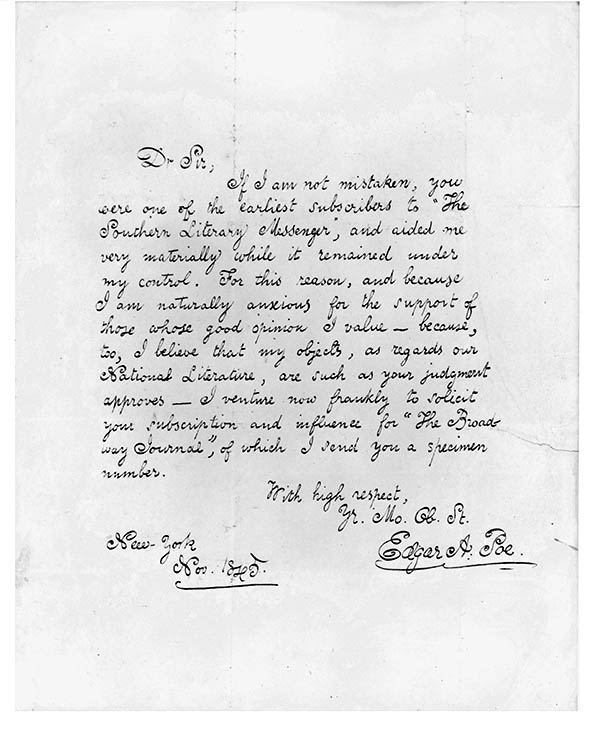 Dr Sir,
If I am not mistaken, you
were one of the earliest subscribers to "The
Southern Literary Messenger", and aided me
very materially while it remained under
my control. For this reason, and because
I am naturally anxious for the support of
those whose good opinion I value — because,
too, I believe that my objects, as regards our
National Literature, are such as your judgment
approves — I venture now frankly to solicit
your subscription and influence for "The Broad-
way Journal", of which I send you a specimen
number.
With high respect,
Yr. Mo. Ob. St.
Edgar A. Poe.
New-York
Nov. 1845.